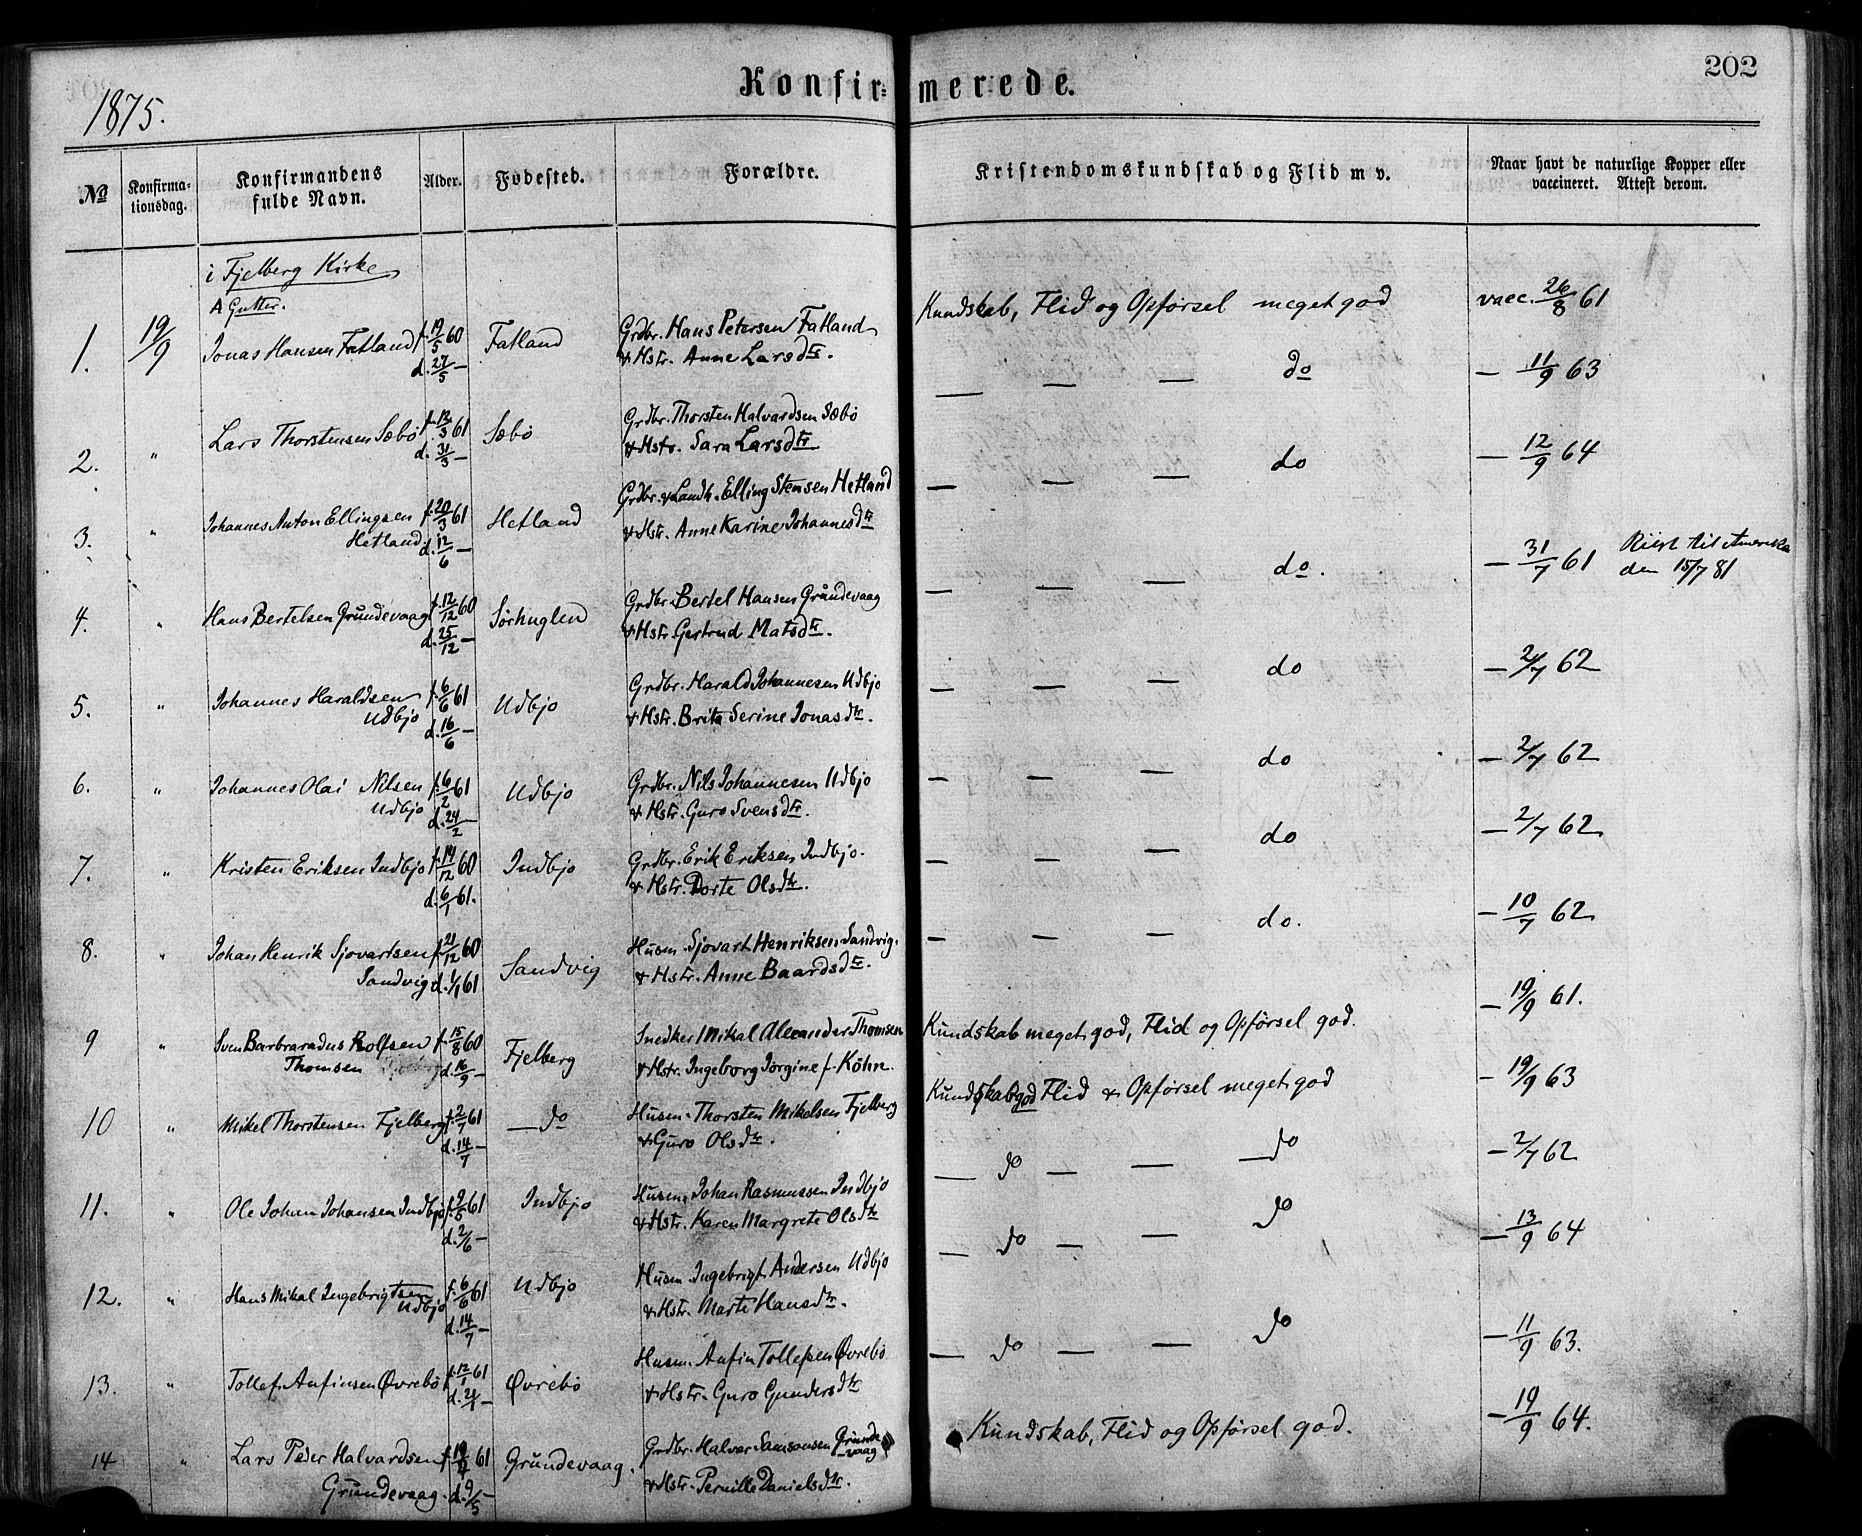 1875.
Konfirmerede.
202
№
Konfirma-
tionsdag.
Konfirmandens
fulde Navn.
Alder.
Fødested.
Forældre.
Kristendomskundskab og Flid m v.
Naar havt de naturlige Kopper eller
vaccineret. Attest derom.
i Fjelberg Kirke
A Gutter.
1. 19/9 Jonas Hansen Fatland f. 19/5 60 Fatland Grdbr. Hans Petersen Fatland Kundskab, Flid og Opførsel meget god vacc. 26/8 61
d. 27/5 — & Hstr. Anne Larsdtr.
2. " Lars Thorstensen Sæbø f. 12/3 61 Sæbø Grdbr. Thorsten Halvardsen Sæbø — — — do — 11/9 63
d. 31/3 — & Hstr. Sara Larsdtr
3. " Johannes Anton Ellingsen f. 20/3 61 Hetland Grdbr. & Landh. Elling Stensen Hetland — — — do — 12/9 64
Hetland d. 12/6 — & Hstr. Anne Karine Johannesdtr
4. " Hans Bertelsen Grundevaag f. 12/12 60 Sørhuglen Grdbr. Bertel Hansen Grundevaag — — — do. — 31/7 61 Reist til Amerika
d. 25/12 — & Hstr. Gertrud Matsdtr. den 15/7 81
5. " Johannes Haraldsen f. 6/6 61 Udbjo Grdbr. Harald Johannesen Udbjo — — — do — 2/7 62
Udbjo d. 16/6 — & Hstr. Brita Serine Jonasdtr.
6. " Johannes Olai Nilsen f. 6/2 61 Udbjo Grdbr. Nils Johannesen Udbjo — — — do — 2/7 62
Udbjo d. 24/2 — & Hstr. Guro Svensdtr.
7. " Kristen Eriksen Indbjo f. 14/12 60 Indbjo Grdbr. Erik Eriksen Indbjo. — — — do — 2/7 62
d. 6/1 61. & Hstr. Dorte Olsdtr.
8. " Johan Henrik Sjovartsen f. 21/12 60 Sandvig Husm. Sjovart Henriksen Sandvig. — — — do. — 10/7 62
Sandvig d. 1/1 61 & Hstr. Anne Baardsdtr.
9 " Sven Barbraradus Rolfsen f. 15/8 60 Fjelberg Snedker Mikal Alexander Thomsen Kundskab meget god, Flid og Opførsel god. — 19/9 61.
Thomsen d. 16/9 — & Hstr. Ingeborg Jørgine f. Köhn.
10 " Mikel Thorstensen Fjelberg f. 2/7 61 — do Husm. Thorsten Mikelsen Fjelberg Kundskab god Flid & Opførsel meget god — 19/9 63
d. 14/7 — & Guro Olsdtr.
11. " Ole Johan Johansen Indbjo f. 9/5 61 Indbjo Husm. Johan Rasmussen Indbjo — do — — — do — 2/7 62
d. 2/6 — & Hstr. Karen Margrete Olsdtr
12. " Hans Mikal Ingebrigtsen f. 6/6 61 Udbjo Husm. Ingebrigt Andersen Udbjo — do — — do — 13/9 64
Udbjo d. 14/7 — & Hstr. Marte Hansdtr.
13. " Tollef Anfinsen Øvrebø f. 12/1 61 Øvrebø Husm. Anfin Tollefsen Øvrebø — do — — do — 11/9 63.
d. — & Hstr. Guro Gundersdtr
14 " Lars Peder Halvardsen f. 19/4 61 Grundevaag. Grdbr. Halvar Samsonsen Grunde-vaag Kundskab, Flid og Opførsel god. — 19/9 64.
Grundevaag. d. 9/5 — & Hstr. Pernille Danielsdtr.